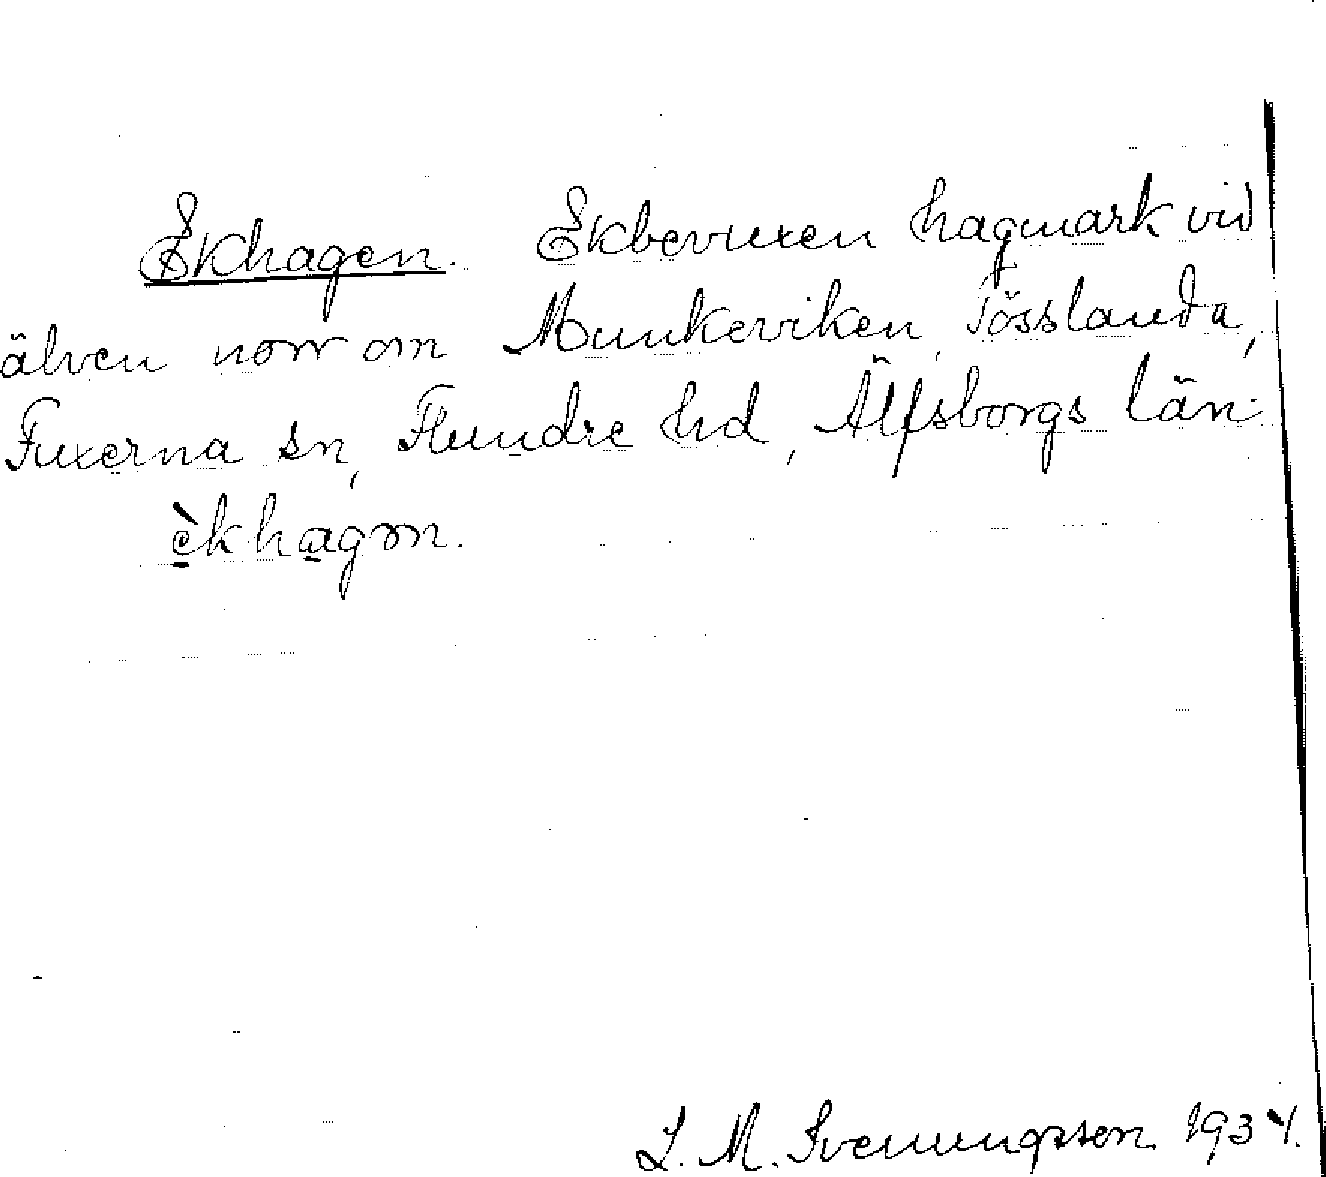 Ekhagen. Ekbevuxen hagmark vid
älven norr om Munkeviken, Tösslanda,
Fuxerna sn, Flundre hd, Älfsborgs län.
èkhagən.
L. M. Svenungsson 1934.